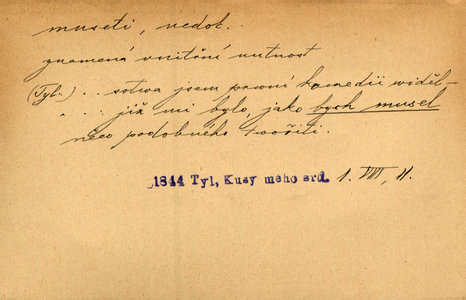 museti, nedok.
znamená vnitřní nutnost
(Tyl.) . . sotva jsem prwní komedii widěl –
. . . již mi bylo, jako bych musel
něco podobného twořiti.
1844 Tyl, Kusy meho srd. 1. VIII, 11.